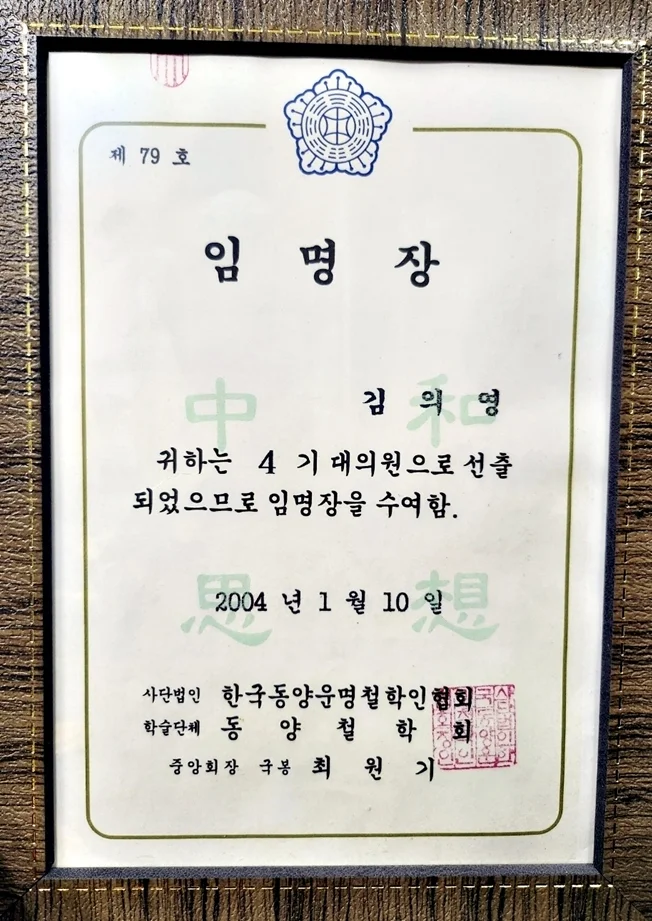 제 79 호
임 명 장
中 和
김 의 영
귀하는 4 기 대의원으로 선출
되었으므로 임명장을 수여함.
思 想
2004 년 1 월 10 일
사단법인 한국동양운명철학인협회
학술단체 동 양 철 학 회
중앙회장 국봉 최 원 기